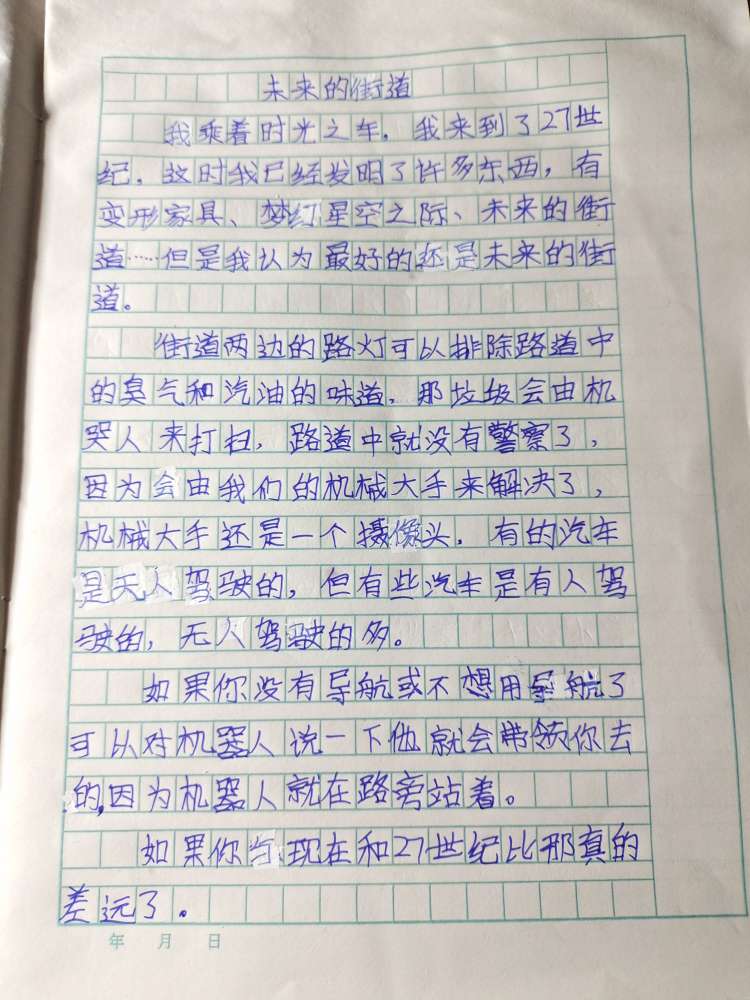 未来的街道
我乘着时光之车，我来到了27世
纪，这时我已经发明了许多东西，有
变形家具、梦幻星空之际、未来的街
道……但是我认为最好的还是未来的街
道。
街道两边的路灯可以排除路道中
的臭气和汽油的味道，那垃圾会由机
器人来打扫，路道中就没有警察了，
因为会由我们的机械大手来解决了，
机械大手还是一个摄像头，有的汽车
是无人驾驶的，但有些汽车是有人驾
驶的，无人驾驶的多。
如果你没有导航或不想用导航了
可以对机器人说一下他就会带领你去
的，因为机器人就在路旁站着。
如果你当现在和27世纪比那真的
差远了。
年 月 日